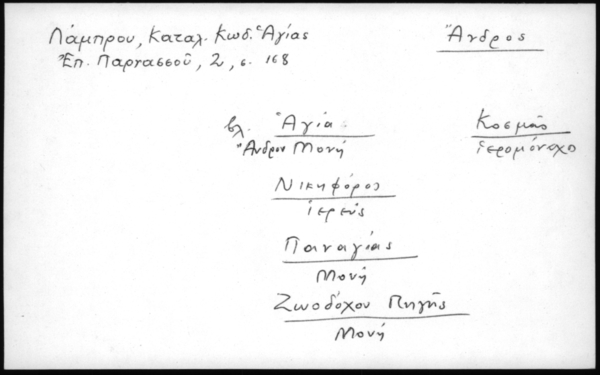 Λάμπρου, Καταλ. Κωδ. Ἁγίας
Ἄνδρος
Ἐπ. Παρνασσοῦ, 2, σ. 168
βλ. Ἁγία
Ἄνδρου Μονή
Κοσμᾶς
ἱερομόναχο
Νικηφόρος
ἱερεύς
Παναγίας
Μονή
Ζωοδόχου Πηγῆς
Μονή